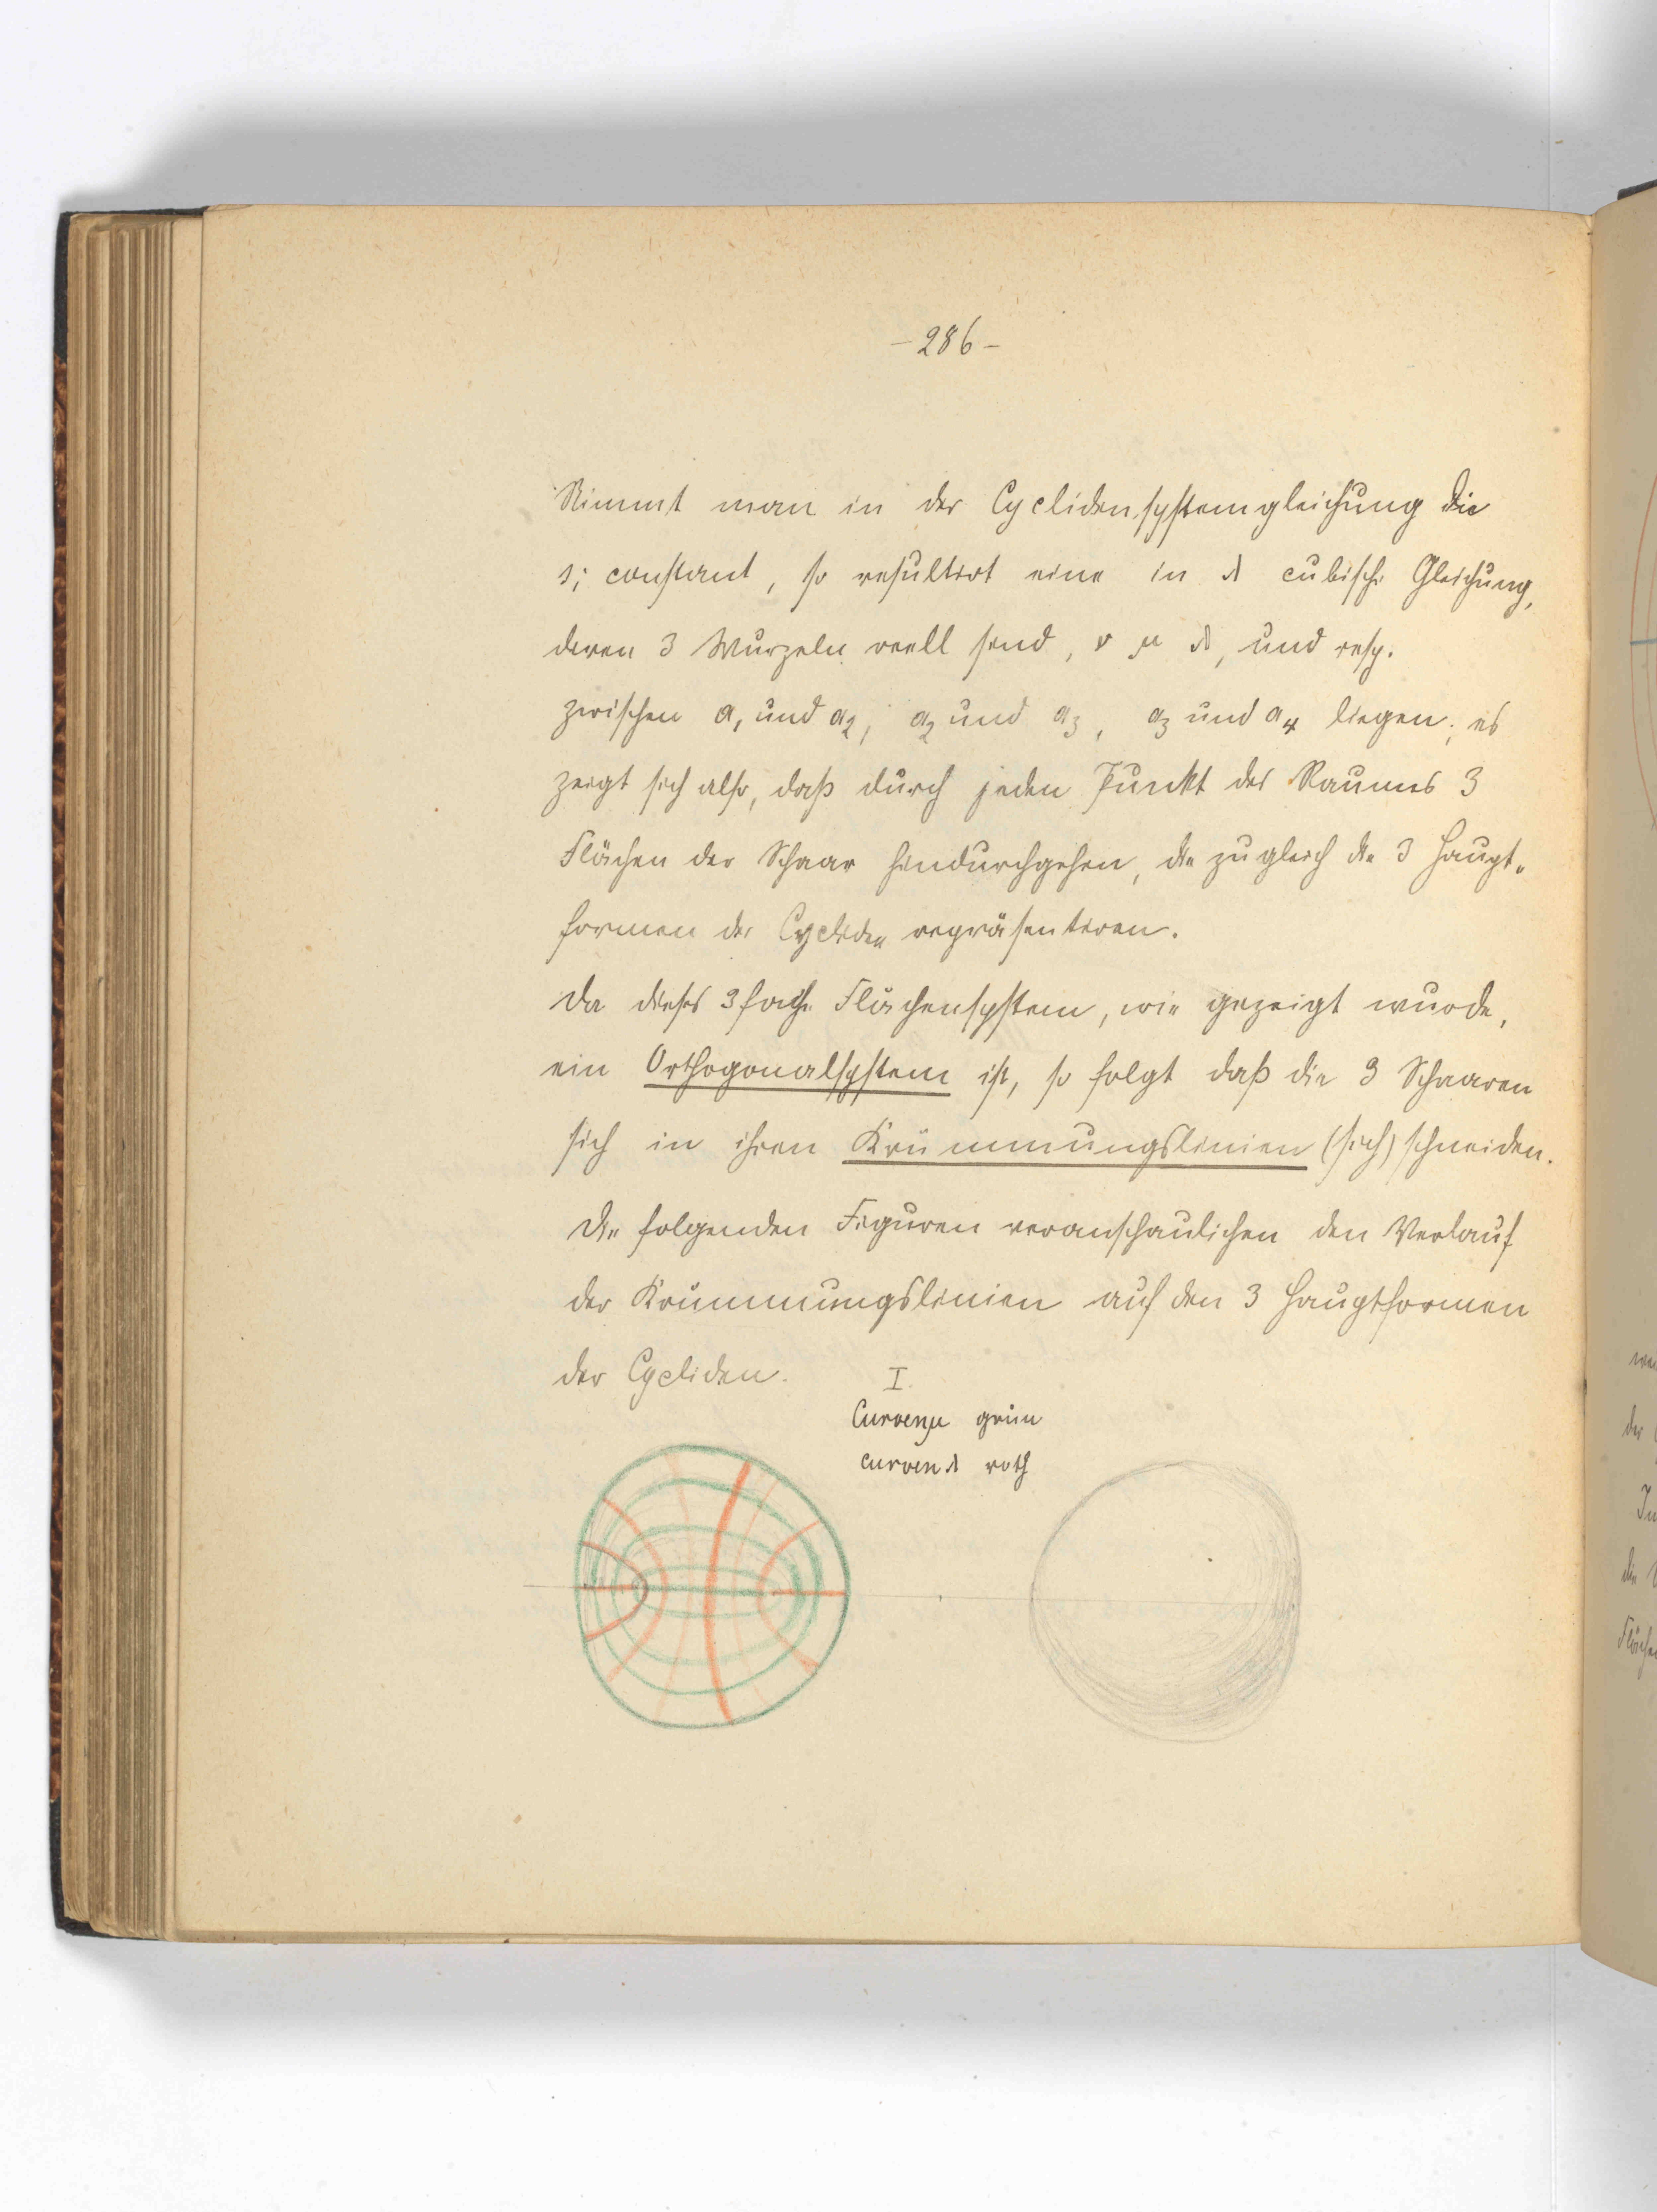 - 286 -
Nimmt man in der Cyclidensystemgleichung die
s; constant, so resultirt eine in λ cubische Gleichung,
deren 3 Wurzeln reell sind, ν μ λ, und resp.
zwischen a₁ und a₂, a₂ und a₃, a₃ und a₄ liegen; es
zeigt sich also, daß durch jeden Punkt des Raumes 3
Flächen der Schaar hindurchgehen, die zugleich die 3 Haupt-
formen der Cycliden repräsentiren.
Da dieses 3fache Flächensystem, wie gezeigt wurde,
ein Orthogonalsystem ist, so folgt daß die 3 Schaaren
sich in ihren Krümmungslinien (sich) schneiden.
Die folgenden Figuren veranschaulichen den Verlauf
der Krümmungslinien auf den 3 Hauptformen
der Cycliden. I.
Curven μ grün
Curven λ roth